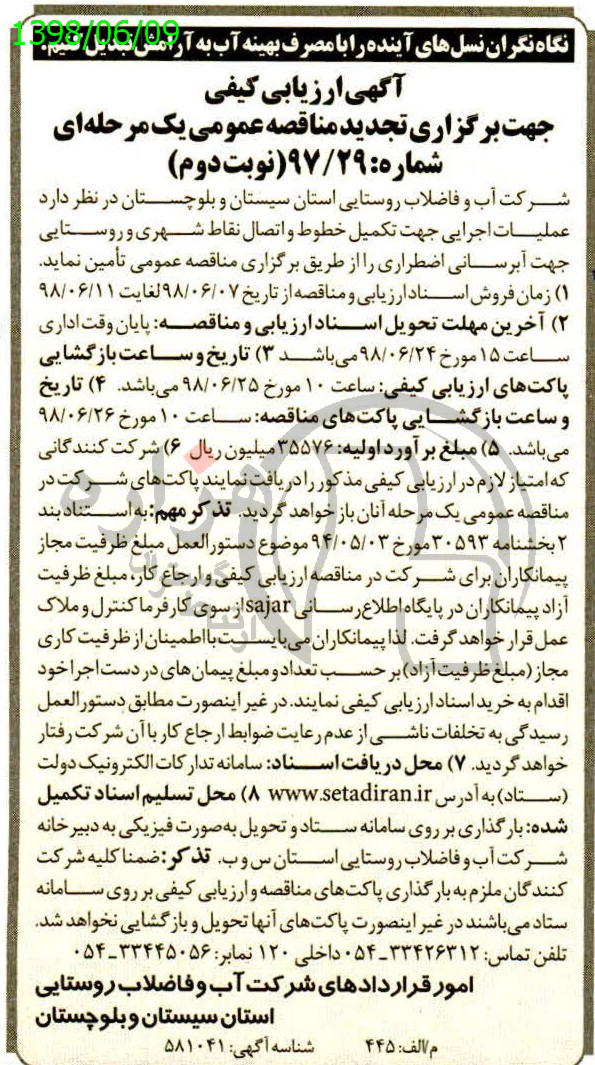 1398/06/09
نگاه نگران نسل‌های آینده را با مصرف بهینه آب به آرامش تبدیل کنیم.
آگهی ارزیابی کیفی
جهت برگزاری تجدید مناقصه عمومی یک مرحله‌ای
شماره: ۹۷/۲۹(نوبت دوم)
شرکت آب و فاضلاب روستایی استان سیستان و بلوچستان در نظر دارد
عملیات اجرایی جهت تکمیل خطوط و اتصال نقاط شهری و روستایی
جهت آبرسانی اضطراری را از طریق برگزاری مناقصه عمومی تأمین نماید.
۱) زمان فروش اسناد ارزیابی و مناقصه از تاریخ ۹۸/۰۶/۰۷ لغایت ۹۸/۰۶/۱۱
۲) آخرین مهلت تحویل اسناد ارزیابی و مناقصه: پایان وقت اداری
ساعت ۱۵ مورخ ۹۸/۰۶/۲۴ می‌باشد ۳) تاریخ و ساعت بازگشایی
پاکت‌های ارزیابی کیفی: ساعت ۱۰ مورخ ۹۸/۰۶/۲۵ می‌باشد. ۴) تاریخ
و ساعت بازگشایی پاکت‌های مناقصه: ساعت ۱۰ مورخ ۹۸/۰۶/۲۶
می‌باشد. ۵) مبلغ برآورد اولیه: ۳۵۵۷۶ میلیون ریال ۶) شرکت کنندگانی
که امتیاز لازم در ارزیابی کیفی مذکور را دریافت نمایند پاکت‌های شرکت در
مناقصه عمومی یک مرحله آنان باز خواهد گردید. تذکر مهم: به استناد بند
۲ بخشنامه ۳۰۵۹۳ مورخ ۹۴/۰۵/۰۳ موضوع دستورالعمل مبلغ ظرفیت مجاز
پیمانکاران برای شرکت در مناقصه ارزیابی کیفی و ارجاع کار، مبلغ ظرفیت
آزاد پیمانکاران در پایگاه اطلاع‌رسانی sajar از سوی کارفرما کنترل و ملاک
عمل قرار خواهد گرفت. لذا پیمانکاران می‌بایست با اطمینان از ظرفیت کاری
مجاز (مبلغ ظرفیت آزاد) بر حسب تعداد و مبلغ پیمان‌های در دست اجرا خود
اقدام به خرید اسناد ارزیابی کیفی نمایند. در غیر اینصورت مطابق دستورالعمل
رسیدگی به تخلفات ناشی از عدم رعایت ضوابط ارجاع کار با آن شرکت رفتار
خواهد گردید. ۷) محل دریافت اسناد: سامانه تدارکات الکترونیک دولت
(ستاد) به آدرس www.setadiran.ir ۸) محل تسلیم اسناد تکمیل
شده: بارگذاری بر روی سامانه ستاد و تحویل به‌صورت فیزیکی به دبیرخانه
شرکت آب و فاضلاب روستایی استان س و ب. تذکر: ضمنا کلیه شرکت
کنندگان ملزم به بارگذاری پاکت‌های مناقصه و ارزیابی کیفی بر روی سامانه
ستاد می‌باشند در غیر اینصورت پاکت‌های آنها تحویل و بازگشایی نخواهد شد.
تلفن تماس: ۳۳۴۲۶۳۱۲-۰۵۴ داخلی ۱۲۰ نمابر: ۳۳۴۴۵۰۵۶-۰۵۴
امور قراردادهای شرکت آب و فاضلاب روستایی
استان سیستان و بلوچستان
م/الف: ۴۴۵ شناسه آگهی: ۵۸۱۰۴۱
هزاره